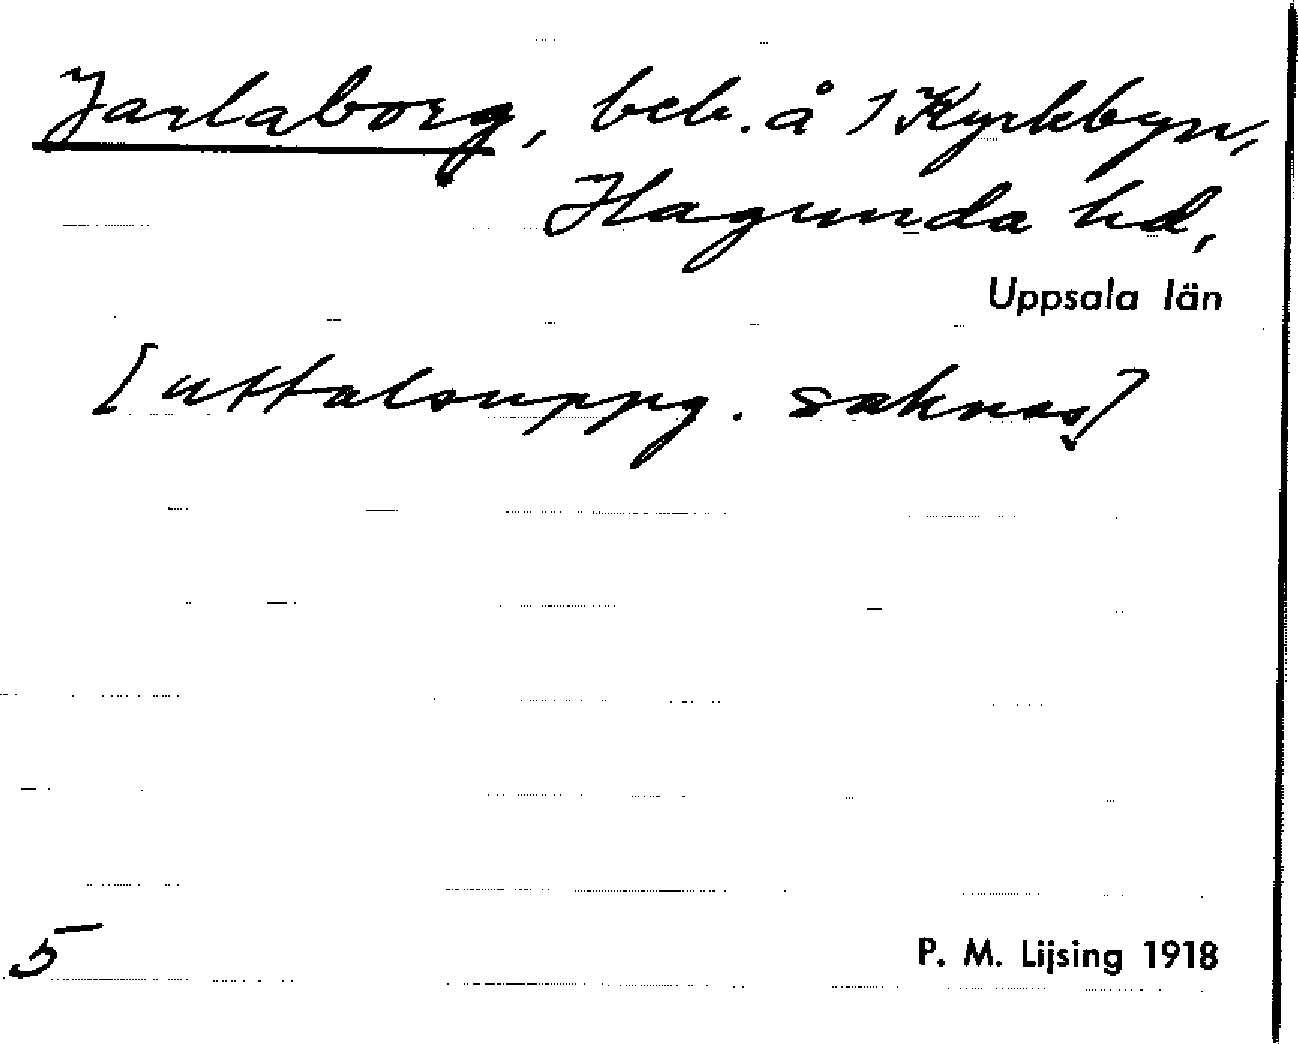 Jarlaborg, beb. å 1 Kyrkbyn,
Hagunda hd,
Uppsala län
[uttalsuppg. saknas]
5
P. M. Lijsing 1918